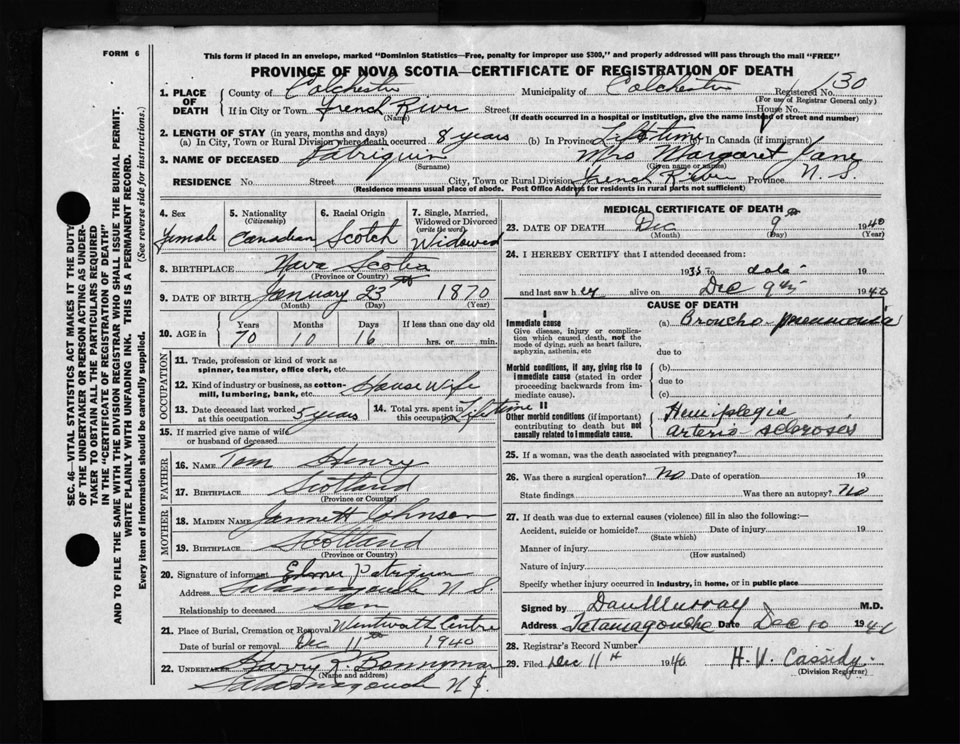 FORM 6
This form if placed in an envelope, marked "Dominion Statistics—Free, penalty for improper use $300," and properly addressed will pass through the mail "FREE"
PROVINCE OF NOVA SCOTIA—CERTIFICATE OF REGISTRATION OF DEATH
1. PLACE OF DEATH County of Colchester Municipality of Colchester Registered No. 130
(For use of Registrar General only)
If in City or Town French River Street House No.
(Name) (If death occurred in a hospital or institution, give the name instead of street and number)
2. LENGTH OF STAY (in years, months and days)
(a) In City, Town or Rural Division where death occurred 8 years (b) In Province Lifetime (c) In Canada (if immigrant)
3. NAME OF DECEASED Patriquin Mrs Margaret Jane
(Surname) (Given name or names)
RESIDENCE No. Street City, Town or Rural Division French River Province N. S.
(Residence means usual place of abode. Post Office Address for residents in rural parts not sufficient)
SEC. 46—VITAL STATISTICS ACT MAKES IT THE DUTY
OF THE UNDERTAKER OR PERSON ACTING AS UNDER-
TAKER TO OBTAIN ALL THE PARTICULARS REQUIRED
IN THE "CERTIFICATE OF REGISTRATION OF DEATH"
AND TO FILE THE SAME WITH THE DIVISION REGISTRAR WHO SHALL ISSUE THE BURIAL PERMIT.
WRITE PLAINLY WITH UNFADING INK. THIS IS A PERMANENT RECORD.
Every item of information should be carefully supplied. (See reverse side for instructions.)
4. Sex 5. Nationality (Citizenship) 6. Racial Origin 7. Single, Married, Widowed or Divorced (write the word)
Female Canadian Scotch Widowed
8. BIRTHPLACE Nova Scotia
(Province or Country)
9. DATE OF BIRTH January 23 1870
(Month) (Day) (Year)
10. AGE in Years Months Days If less than one day
70 10 16 hrs. or min.
OCCUPATION
11. Trade, profession or kind of work as
spinner, teamster, office clerk, etc.
12. Kind of industry or business, as cotton-
mill, lumbering, bank, etc. House Wife
13. Date deceased last worked at this occupation 5 years 14. Total yrs. spent in this occupation Lifetime
15. If married give name of wife
or husband of deceased
FATHER
16. NAME Tom Henry
17. BIRTHPLACE Scotland
(Province or Country)
MOTHER
18. MAIDEN NAME Jannett Johnson
19. BIRTHPLACE Scotland
(Province or Country)
20. Signature of informant Elmer Patriquin
Address Tatamagouche N S.
Relationship to deceased Son
21. Place of Burial, Cremation or Removal Wentworth Centre
Date of burial or removal Dec 11th 1940
22. UNDERTAKER Harry R. Bonnyman
(Name and address)
Tatamagouche N S.
MEDICAL CERTIFICATE OF DEATH
23. DATE OF DEATH Dec 9th 1940
(Month) (Day) (Year)
24. I HEREBY CERTIFY that I attended deceased from:
to date
and last saw her alive on Dec 9th 1940
CAUSE OF DEATH
I
Immediate cause (a) Broncho-pneumonia
Give disease, injury or complica-
tion which caused death, not the
mode of dying, such as heart failure,
asphyxia, asthenia, etc due to
Morbid conditions, if any, giving rise to (b)
immediate cause (stated in order due to
proceeding backwards from im-
mediate cause). (c)
II
Other morbid conditions (if important) Hemiplegia
contributing to death but not Arterio scleroses
causally related to immediate cause.
25. If a woman, was the death associated with pregnancy?
26. Was there a surgical operation? No Date of operation 19
State findings Was there an autopsy? No
27. If death was due to external causes (violence) fill in also the following:—
Accident, suicide or homicide? Date of injury 19
(State which)
Manner of injury
(How sustained)
Nature of injury
Specify whether injury occurred in industry, in home, or in public place
Signed by Dan Murray M.D.
Address Tatamagouche Date Dec 10 1940
28. Registrar's Record Number
29. Filed Dec 11th 1940 H. V. Cassidy.
(Division Registrar)